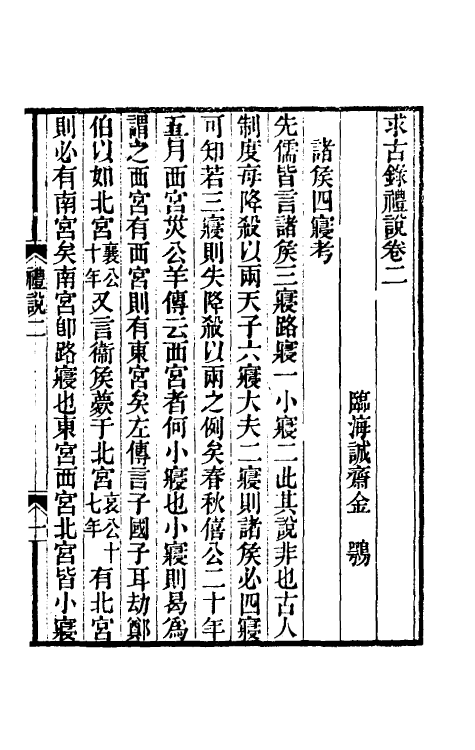 求古錄禮說卷二
臨海誠齋金 鶚
諸矦四寢考
先儒皆言諸矦三寢路寢一小寢二此其說非也古人
制度每降殺以兩天子六寢大夫二寢則諸矦必四寢
可知若三寢則失降殺以兩之例矣春秋僖公二十年
五月西宮災公羊傳云西宮者何小寢也小寢則曷為
謂之西宮有西宮則有東宮矣左傳言子國子耳劫鄭
伯以如北宮襄公十年又言衞矦夢于北宮哀公十七年有北宮
則必有南宮矣南宮卽路寢也東宮西宮北宮皆小寢
禮說二
一